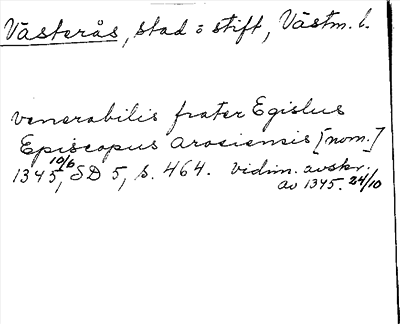 Västerås, stad o stift, Västm. l.
venerabilis frater Egislus
Episcopus arosiensis [nom.]
1345 10/6, SD 5, s. 464. vidim. avskr.
av 1345. 24/10